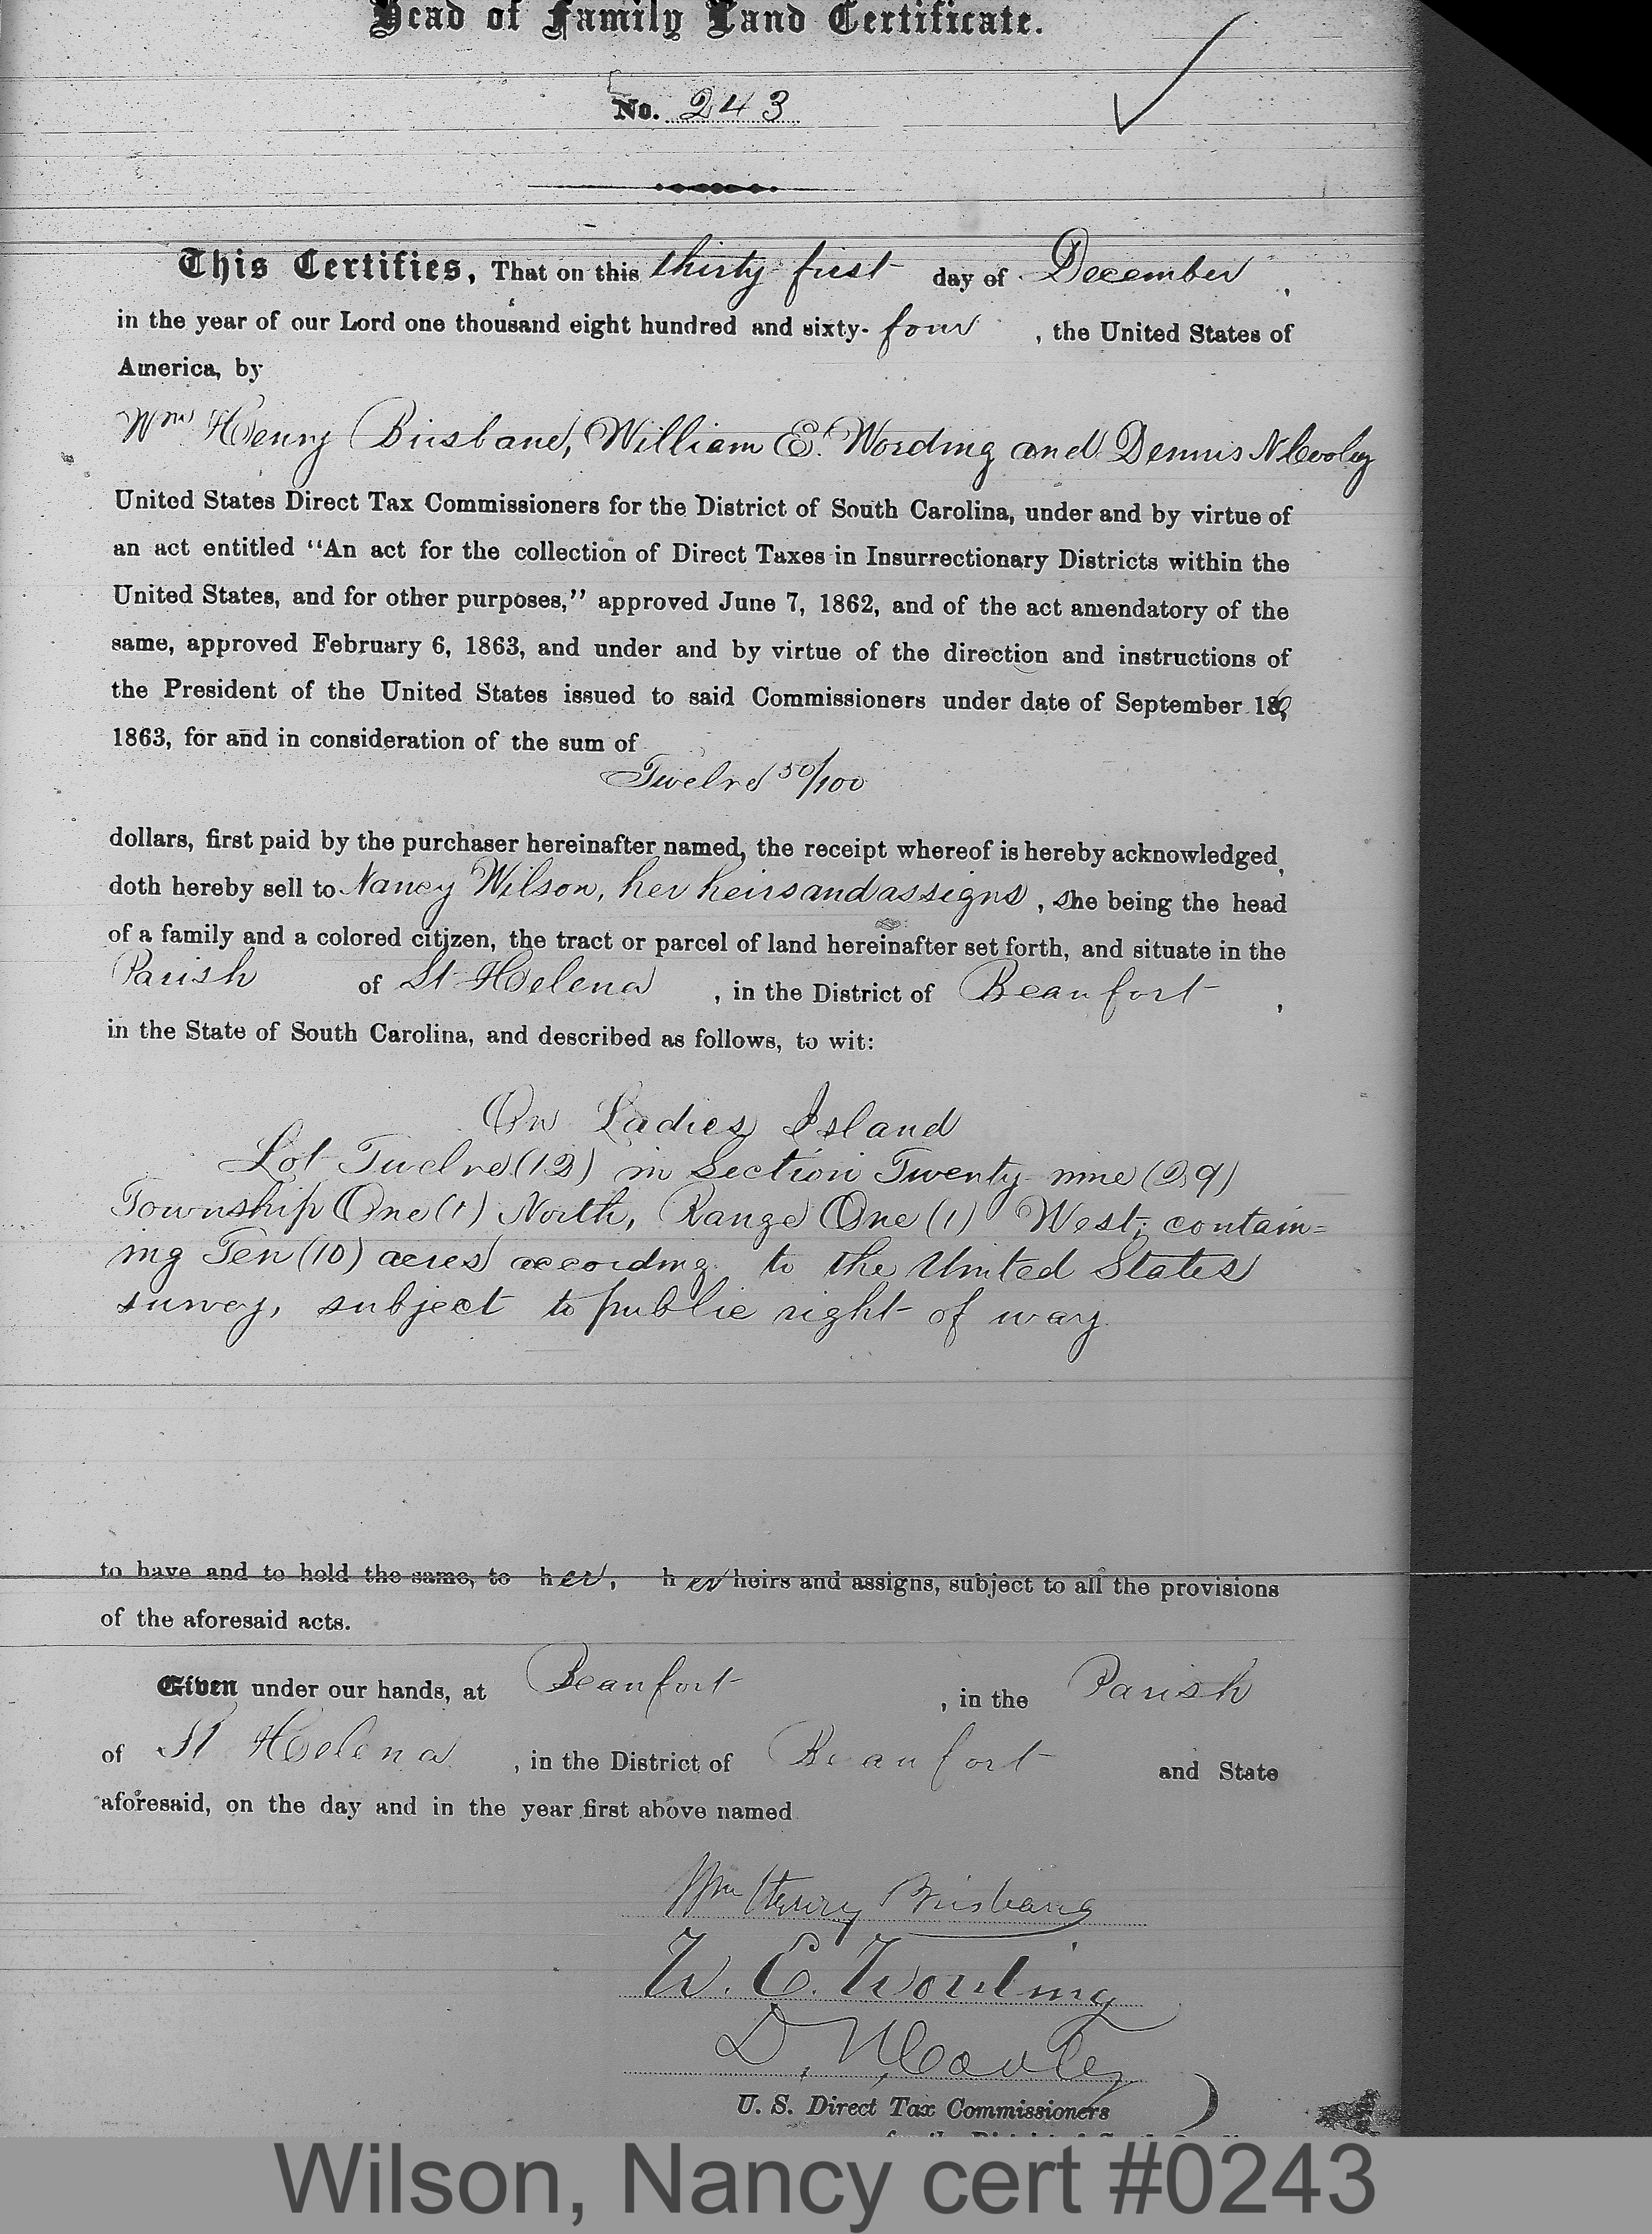 Head of Family Land Certificate.
No. 243
This Certifies, That on this thirty first day of December,
in the year of our Lord one thousand eight hundred and sixty-four, the United States of
America, by
Wm Henry Brisbane, William E. Wording and Dennis N Cooley
United States Direct Tax Commissioners for the District of South Carolina, under and by virtue of
an act entitled "An act for the collection of Direct Taxes in Insurrectionary Districts within the
United States, and for other purposes," approved June 7, 1862, and of the act amendatory of the
same, approved February 6, 1863, and under and by virtue of the direction and instructions of
the President of the United States issued to said Commissioners under date of September 16,
1863, for and in consideration of the sum of
Twelve 50/100
dollars, first paid by the purchaser hereinafter named, the receipt whereof is hereby acknowledged,
doth hereby sell to Nancy Wilson, her heirs and assigns, she being the head
of a family and a colored citizen, the tract or parcel of land hereinafter set forth, and situate in the
Parish of St Helena, in the District of Beaufort,
in the State of South Carolina, and described as follows, to wit:
On Ladies Island
Lot Twelve (12) in Section Twenty nine (29)
Township One (1) North, Range One (1) West; contain=
ing Ten (10) acres according to the United States
survey, subject to public right of way.
to have and to hold the same, to her, her heirs and assigns, subject to all the provisions
of the aforesaid acts.
Given under our hands, at Beaufort, in the Parish
of St Helena, in the District of Beaufort and State
aforesaid, on the day and in the year first above named
Wm Henry Brisbane
W. E. Wording
D. N. Cooley
U. S. Direct Tax Commissioners
Wilson, Nancy cert #0243